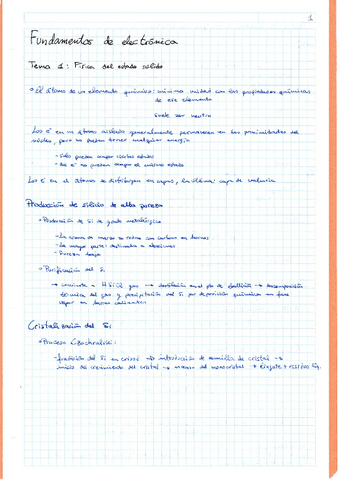 1
Fundamentos de electrónica
Tema 1: Física del estado sólido
El átomo de un elemento químico: mínima unidad con las propiedades químicas
de ese elemento
Suele ser neutro
Los e⁻ en un átomo aislado generalmente permanecen en las proximidades del
núcleo, pero no pueden tener cualquier energía
- Solo pueden ocupar ciertos estados
- Dos e⁻ no pueden ocupar el mismo estado
Los e⁻ en el átomo se distribuyen en capas, la última: capa de valencia
Producción de silicio de alta pureza
Producción de Si de grado metalúrgico
- La arena de cuarzo se reduce con carbono en hornos
- La mayor parte: destinada a aleaciones
- Pureza baja
Purificación del Si
→ convierte a HSiCl gas → destilación en el pto de ebullición → descomposición
térmica del gas y precipitación del Si por deposición química en fase
vapor en barras calientes
Cristalización del Si
Proceso Czochralski:
- fundición del Si en crisol → introducción de semilla de cristal →
inicio del crecimiento del cristal → del monocristal →